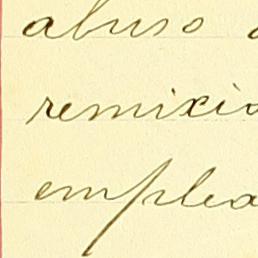 abuso
remixio
emplea